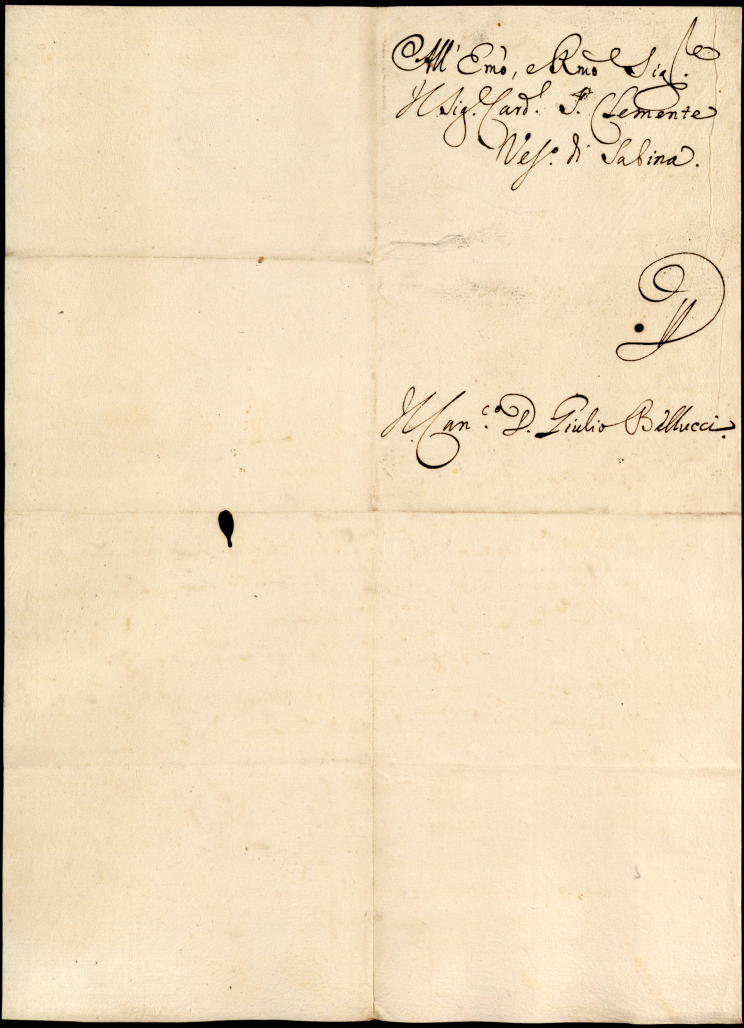 All' Emo, e Rmo Sigre.
Il Sig. Card. S. Clemente
Veso. di Sabina.
Il Canco. D. Giulio Bellucci.